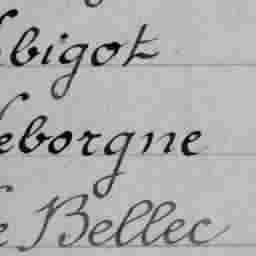 bigot
eborgne
e Bellec